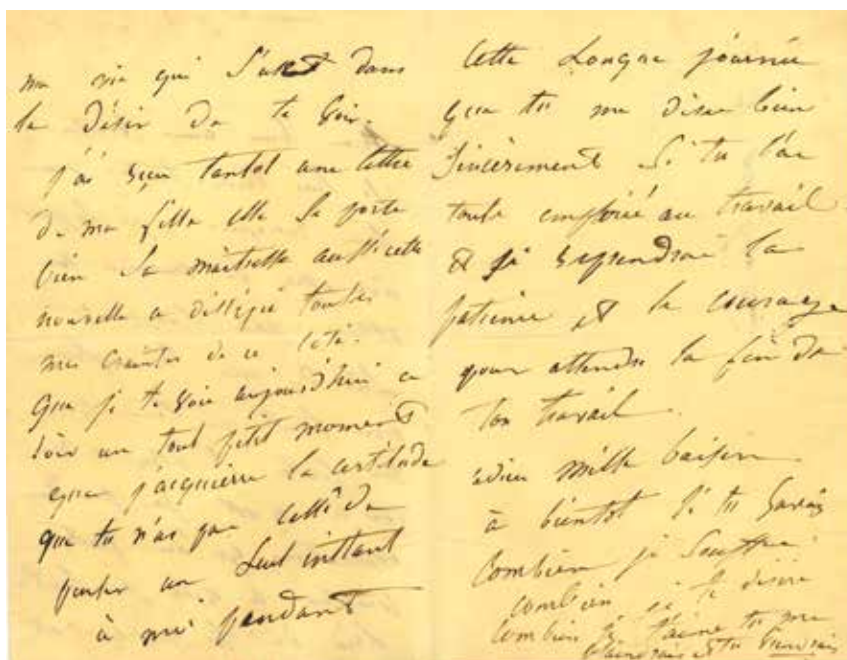 ma vie qui s'use dans
le désir de te voir.
j'ai reçu tantot une lettre
de ma fille elle se porte
bien sa maitresse aussi cette
nouvelle a dissipé toutes
mes craintes de ce coté.
Que je te voie aujourd'hui ce
soir un tout petit moment
que j'acquierre la certitude
que tu n'as pas cessé de
penser un seul instant
à moi pendant
cette longue journée
que tu me dises bien
sincèrement si tu l'as
toute employée au travail
et je reprendrai la
patience et le courage
pour attendre la fin de
ton travail.
adieu mille baisers
à bientot si tu savais
combien je souffre
combien je te désire
combien je t'aime tu me
plaindrais et tu viendrais